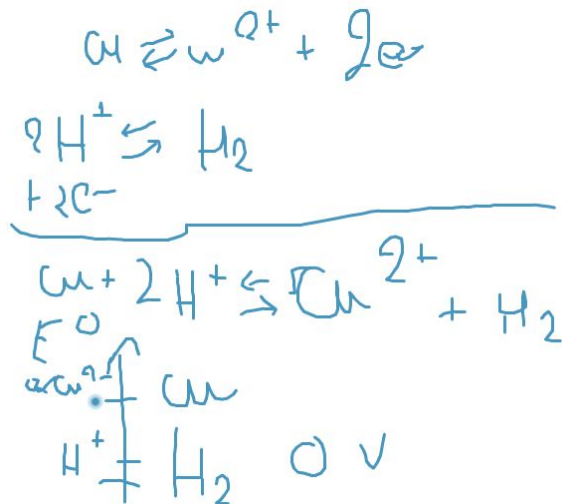 Cu ⇄ Cu²⁺ + 2e⁻
2H⁺ ⇆ H₂
+ 2e⁻
Cu + 2H⁺ ⇆ Cu²⁺ + H₂
E⁰
Cu²⁺ Cu
H⁺ H₂ 0 V